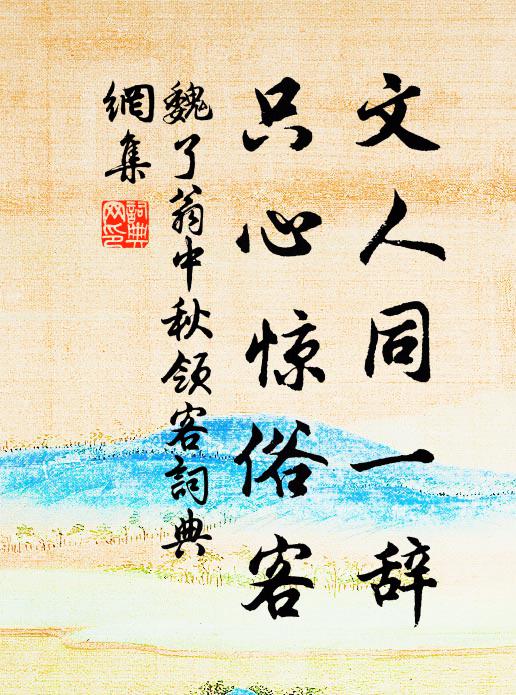 文人同一辞
只心惊俗客
魏了翁中秋领客詞典
網集
詞典
网印